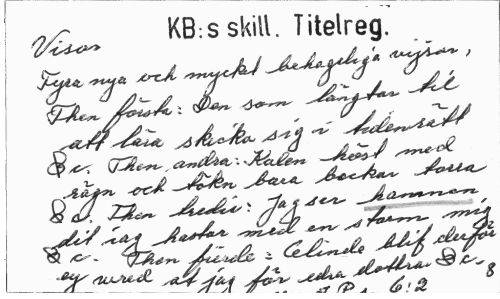 KB:s skill. Titelreg.
Visor
Fyra nya och myckt behageliga vijsor,
Then första: Den som längtar til
att lära skicka sig i tiden rätt
&c. Then andra: Kalen höst med
rägn och tökn bara bockar torra
&c. Then tredie: Jag ser hamnen
dit jag hastar med en storm mig
&c. Then fierde: Celinde blif derför
ej wred at jag för edra döttrar &c.
6:2